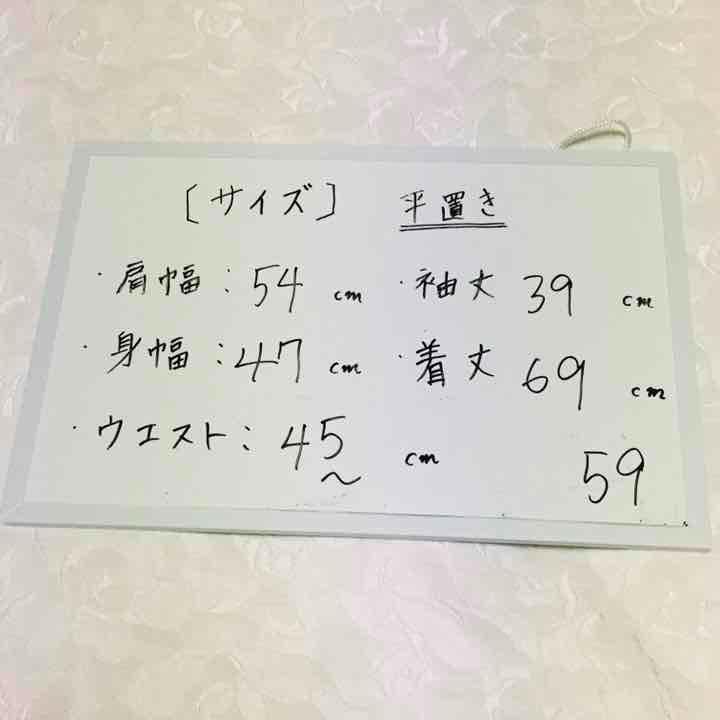 [サイズ] 平置き
・肩幅：54 cm ・袖丈 39 cm
・身幅：47 cm ・着丈 69 cm
・ウエスト：45〜 cm
59